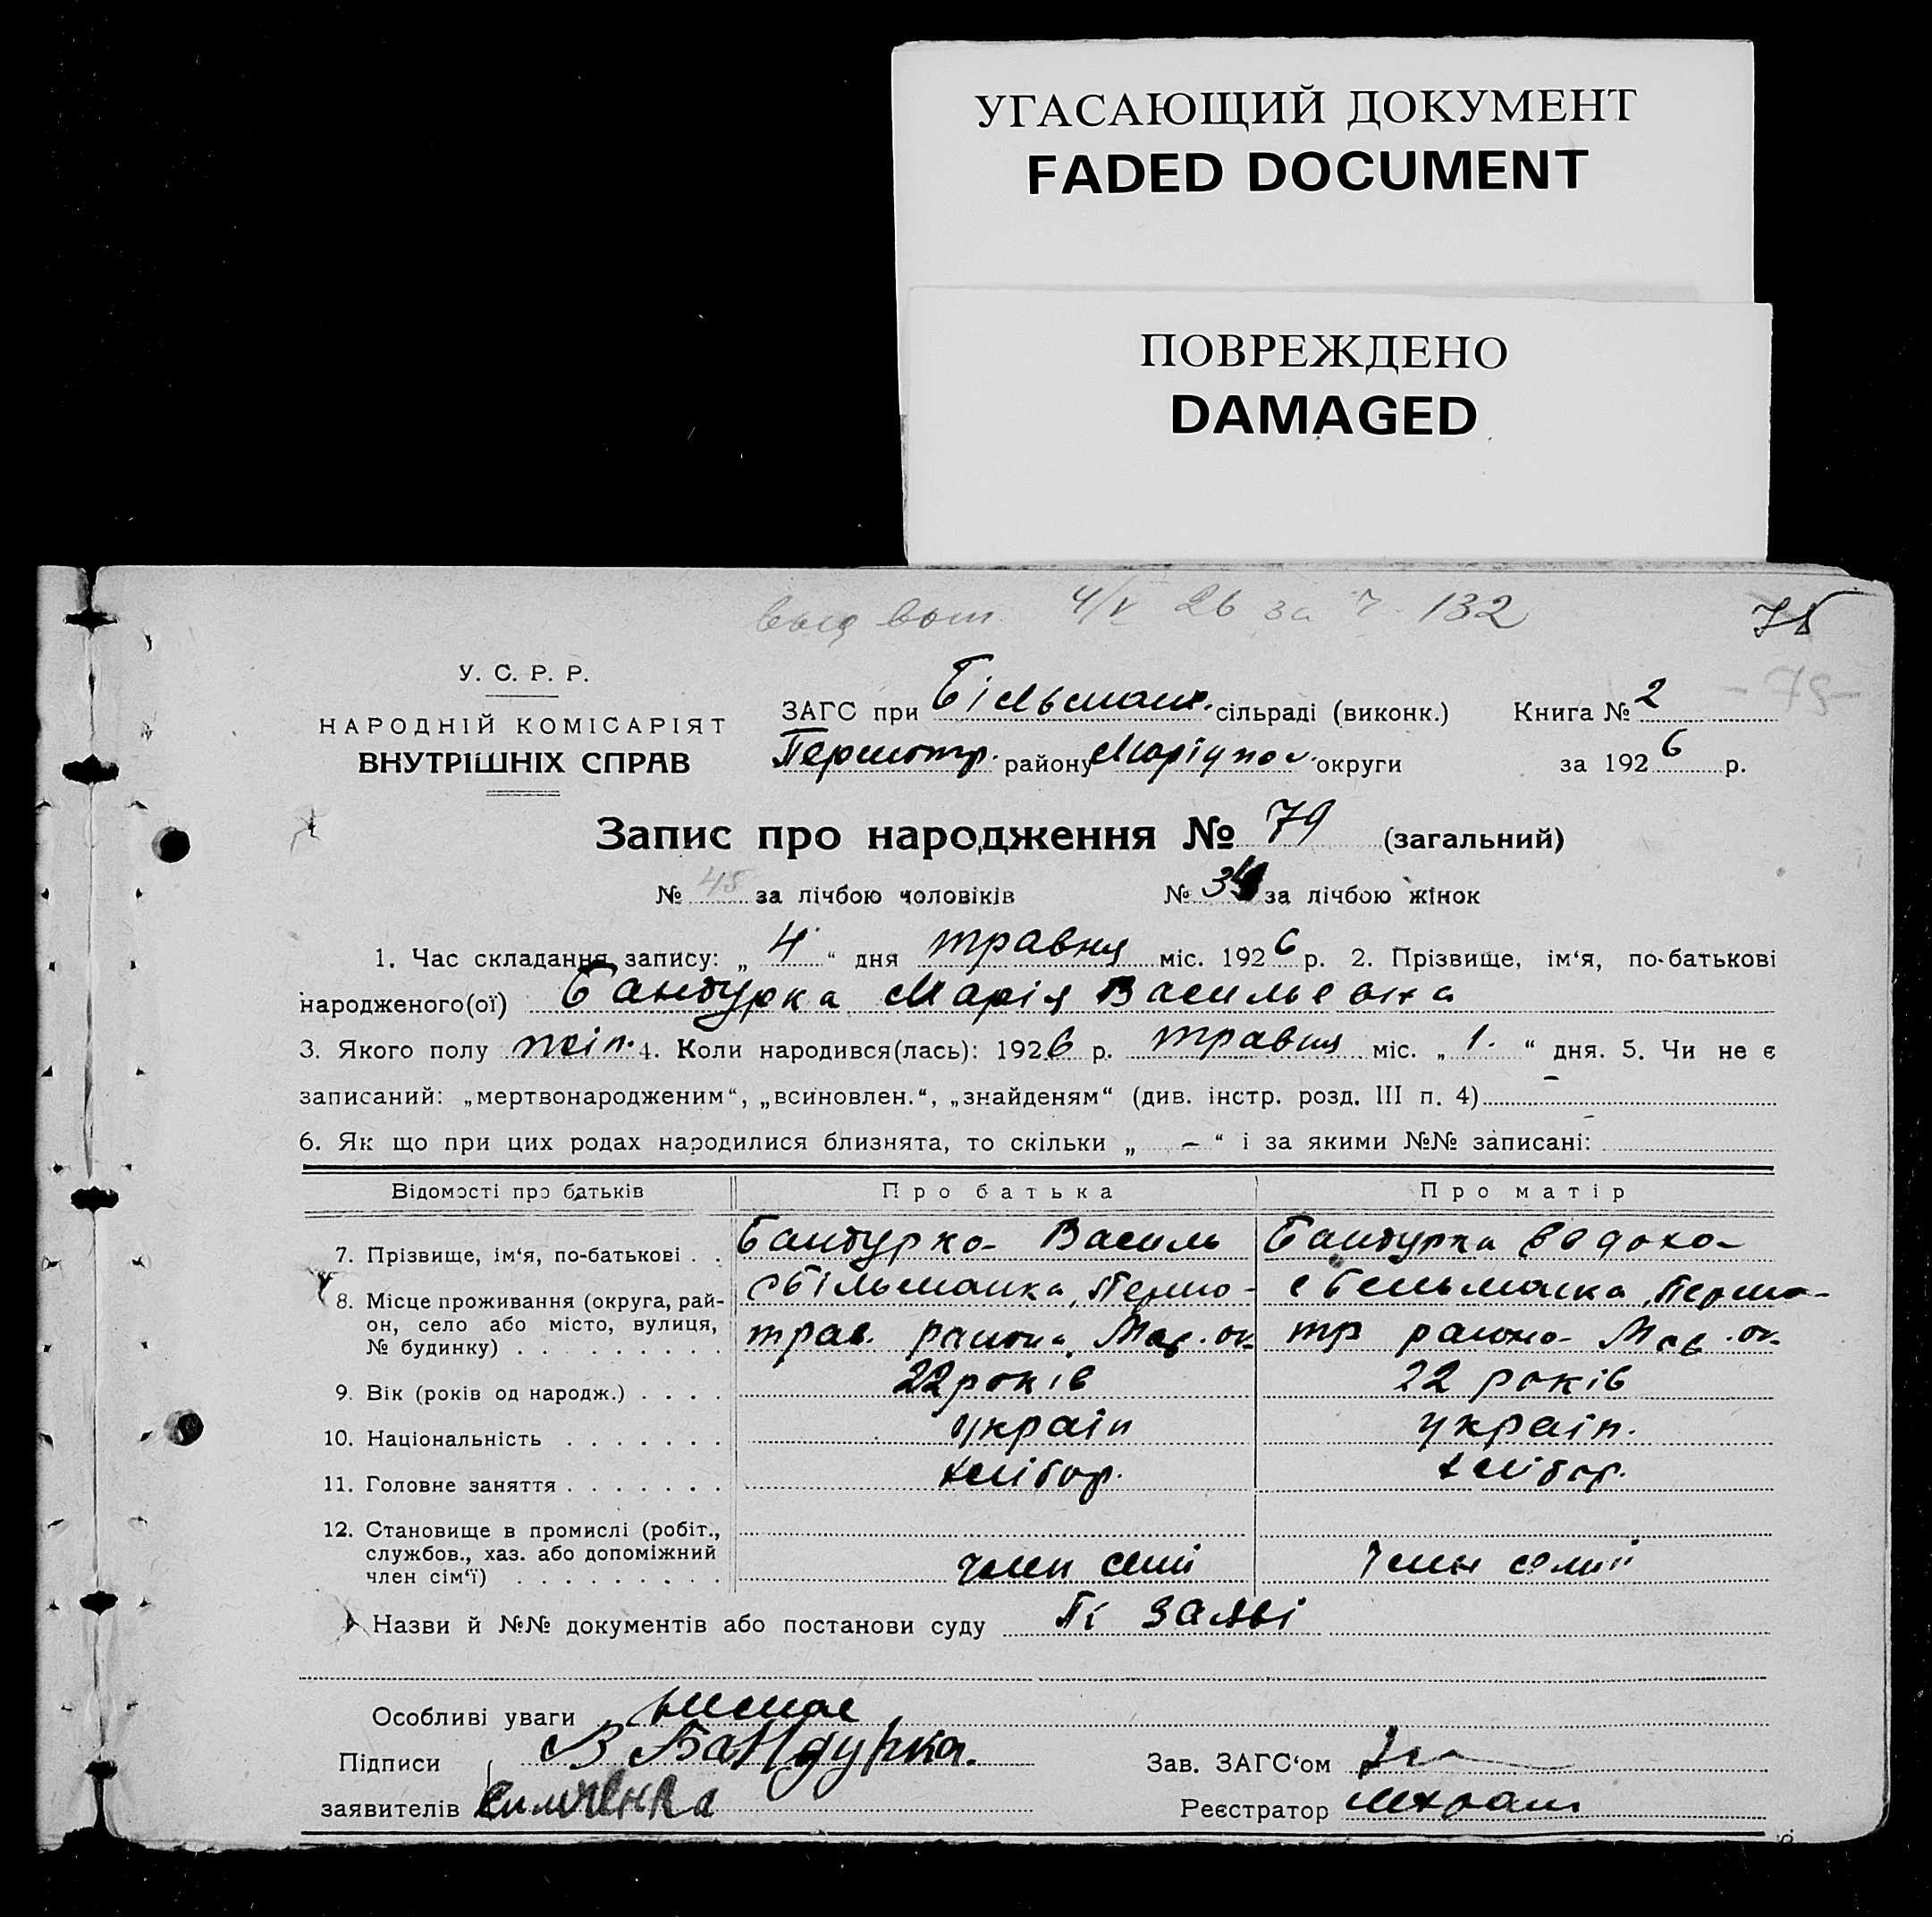 УГАСАЮЩИЙ ДОКУМЕНТ
FADED DOCUMENT
ПОВРЕЖДЕНО
DAMAGED
4/V 26 за 132
78
- 78 -
У. С. Р. Р.
НАРОДНІЙ КОМІСАРІЯТ
ВНУТРІШНІХ СПРАВ
ЗАГС при Більман. сільраді (виконк.) Книга № 2
Першотр. району Маріупол. округи за 1926 р.
Запис про народження № 79 (загальний)
№ 45 за лічбою чоловіків № 34 за лічбою жінок
1. Час складання запису: „ 4 “ дня травня міс. 1926 р. 2. Прізвище, ім‘я, по-батькові
народженого(ої) Бандурка Марія Васильевна
3. Якого полу жін. 4. Коли народився(лась): 1926 р. травня міс. „ 1. “ дня. 5. Чи не є
записаний: „мертвонародженим“, „всиновлен.“, „знайденям“ (див. інстр. розд. III п. 4) –
6. Як що при цих родах народилися близнята, то скільки „ – “ і за якими №№ записані: –
Відомості про батьків Про батька Про матір
7. Прізвище, ім‘я, по-батькові . . Бандурка Василь Бандурка
8. Місце проживання (округа, рай- с Більманка, Першо- с Бельманка, Першо-
он, село або місто, вулиця, трав. района, Мар. ок. тр района Мар. ок.
№ будинку) . . . . . . . . .
9. Вік (років од народж.) . . . . 22 років 22 років
10. Національність . . . . . . . україн україн.
11. Головне заняття . . . . . . . хлібор. хлібор.
12. Становище в промислі (робіт.,
службов., хаз. або допоміжний
член сім‘ї) . . . . . . . . . член семі член семії
Назви й №№ документів або постанови суду По заяві
Особливі уваги немае
Підписи В Бандурка. Зав. ЗАГС‘ом
заявителів Реєстратор